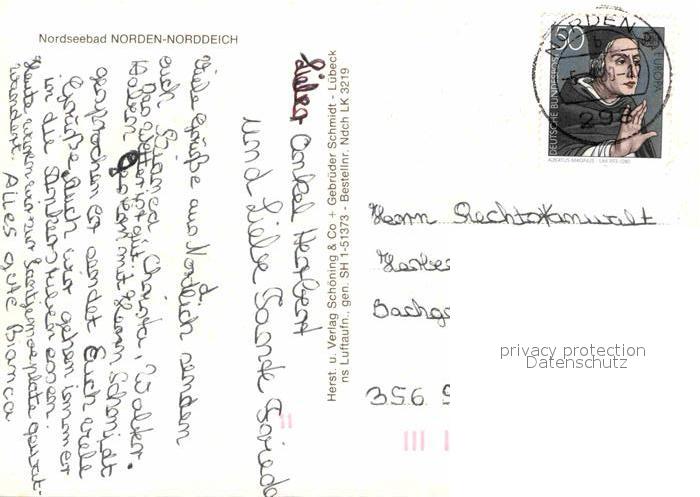 Nordseebad NORDEN-NORDDEICH
Lieber Onkel Herbert
und Liebe Tante Friede
Viele Grüße aus Norddeich senden
Euch Bianca, Christa, Walter.
Das Wetter ist gut.
Haben mit Herrn Schmidt
gesprochen er sendet Euch viele
Grüße. Auch wir gehen immer
in die
Heute waren wir zur
wandert. Alles gute Bianca
Herst. u. Verlag Schöning & Co + Gebrüder Schmidt - Lübeck
ns Luftaufn., gen. SH 1-51373 - Bestellnr. Ndch LK 3219
50
DEUTSCHE BUNDESPOST
EUROPA
ALBERTUS MAGNUS
NORDEN
298
Herrn Rechtsanwalt
356
privacy protection
Datenschutz